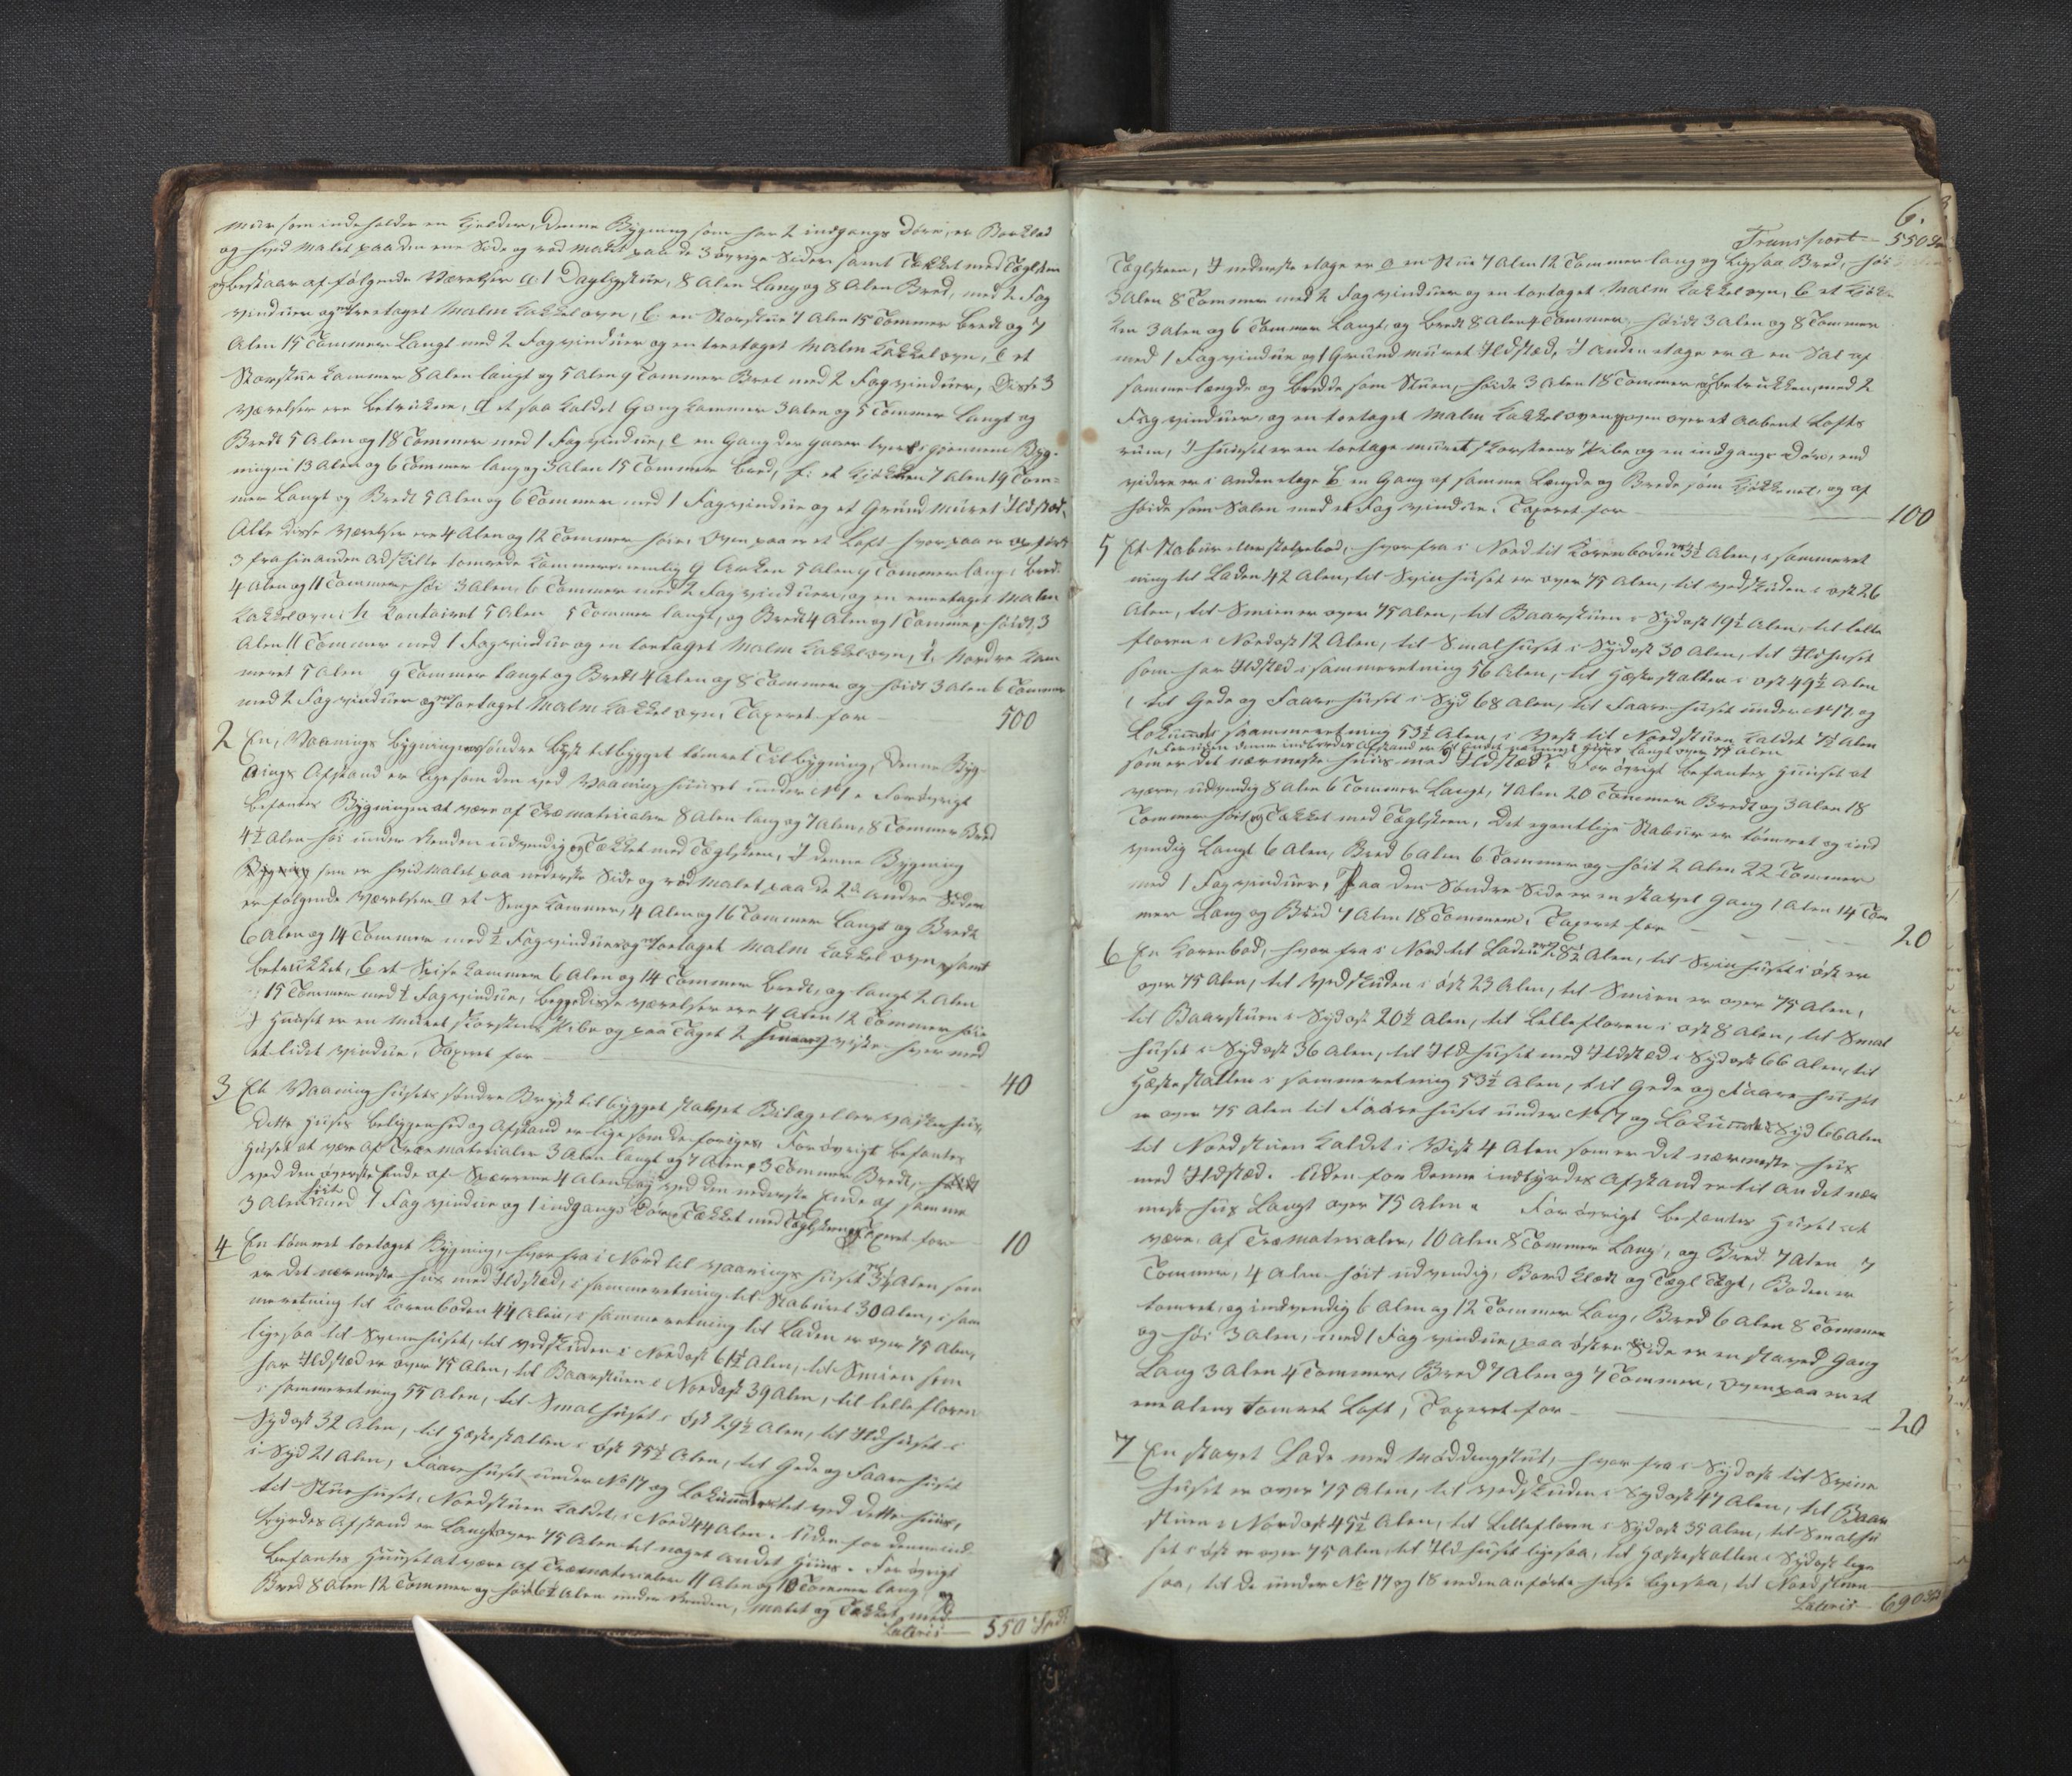 Muur som indeholder en Kjelder, Denne Bygning som har 2 indgangs Døre, er Bordklæd
og hvid Malet paa den ene Side og rød Malet paa de 3 øvrige Sider samt Tækket med Tæglsten
og bestaar af følgende Værelser a: 1 Dagligstue, 8 Alen Lang og 8 Alen Bred, med 2 Fag
Vinduer og en treetaget Malm Kakkelovn, b en Storstue 7 Alen 15 Tommer Bredt og 7
Alen 15 Tommer Langt med 2 Fag vinduer og en treetaget Malm Kakkelovn, c et
Storstue Kammer 8 Alen langt og 5 Alen 9 Tommer Bret med 2 Fag vinduer, Disse 3
Værelser ere betrukken, d et saa kaldet Gang Kammer 3 Alen og 5 Tommer Langt og
Bredt 5 Alen og 18 Tommer med 1 Fag vindue, e en Gang der gaaer tvers igjennem Byg-
ningen 13 Alen og 6 Tommer lang og 3 Alen 15 Tommer bred, f: et Kjøkken 7 Alen 19 Tom-
mer Langt og Bredt 5 Alen og 6 Tommer med 1 Fag vindue og et Grund Muret Ildsted.
Alle disse Værelser ere 4 Alen og 12 Tommer høie, Oven paa er et Loft hvor paa er opført
3 fra hinanden Adskilte tomrede Kammers nemlig g Arken 5 Alen 9 Tommer lang, Bred
4 Alen og 11 Tommer, høi 3 Alen, 6 Tommer med 2 Fag vinduer, og en eneetaget Malm
Kakkelovn, h Kontoiret 5 Alen 5 Tommer langt, og Bredt 4 Alen og 1 Tomme, høidt 3
Alen 11 Tommer med 1 Fag vindue og en toetaget Malm Kakkelovn, i, Nordre Kam
meret 5 Alen 9 Tommer langt og Bredt 4 Alen og 8 Tommer og høidt 3 Alen 6 Tommer
med 2 Fag vinduer og en toetaget Malm Kakkelovn, Taxeret for — 500
2 En, Vaanings Bygningens søndre Byst tilbygget tømret Tilbygning, Denne Byg-
nings Afstand er ligesom den ved Vaaninghuuset under No 1. Forøvrigt
befantes Bygningen at være af Træmaterialer 8 Alen lang og 7 Alen, 8 Tommer Bred
4½ Alen høi under Renden udvendig og Tækket med Tæglsteen, I denne Bygning
som er hvid Malet paa nederste Side og rød Malet paa de 2de andre Sider
er følgende Værelser a et Senge Kammer, 4 Alen og 16 Tommer Langt og Bredt
6 Alen og 14 Tommer med ½ Fag vinduer og en toetaget Malm Kakkelovn, samt
betrukket, b et Spise Kammer 6 Alen og 14 Tommer Bredt, og langt 2 Alen
15 Tommer med 1 Fag vindue, begge disse Værelser ere 4 Alen 12 Tommer høie
I Huuset er en Muret Skorsteens Pibe og paa Taget 2 hver med
et lidet vindue, Taxeret for — 40
3 Et Vaaning husets søndre Bryst tilbygget stavet Bilag eller vasker huus
Dette Huses beliggenhed og Afstand er lige som de foriges, For øvrigt befantes
Huset at være af Træmaterialer 3 Alen langt og 7 Alen, 3 Tommer Bredt,
ved den øverste Ende af Sperrene 4 Alen høi ved den nederste Ende af samme
3 Alen høit med 1 Fag vindue og 1 indgangs Dør, Tækket med Tæglsteen, Taxeret for — 10
4 En tømret toetaget Bygning, hvor fra i Nord til Vaanings huset er 3¼ Alen som
er det nærmeste hus med Ildsted, i sammeretning til Staburet 30 Alen, i sam
meretning til Korenboden 44 Alen, i samme retning til Laden er over 75 Alen,
ligesaa til Svinehuset, til vedskuden i Nordost 61½ Alen, til Smien som
har Ildsted er over 75 Alen, til Baarstuen i Nordost 39 Alen, til lillefloren
i sammeretning 55 Alen, til Smalhuset i Øst 29½ Alen, til Ildhuset i
Sydost 32 Alen, til Hæstestallen i Øst 55½ Alen, til Gede og Faarehuset
i Syd 21 Alen, Faarehuset under No 17 og Lokummet tet ved dette huus,
til Stuehuset, Nordstuen kaldet, i Nord 44 Alen. Uden for denne ind-
byrdes Afstand er Langt over 75 Alen til noget andet Huus. For øvrigt
befantes Huuset at være af Træmaterialer 11 Alen og 10 Tommer lang og
Bred 8 Alen 12 Tommer og høi 6½ Alen under Renden, Malet og Tækket med
Lateris — 550 Spd
6.
Transport — 550 Spd
Tæglsteen, I nederste etage er a en Stue 7 Alen 12 Tommer lang og ligesaa Bred, høi
3 Alen 8 Tommer med 2 Fag vinduer og en toetaget Malm Kakkelovn, b et Kjøk-
ken 3 Alen og 6 Tommer Langt, og Bredt 8 Alen 4 Tommer, høidt 3 Alen og 8 Tommer
med 1 Fag vindue og 1 Grund muret Ildsted, I Anden etage er a en Sal af
samme længde og bredde som Stuen, høide 3 Alen 18 Tommer og betrukken, med 2
Fag vinduer, og en toetaget Malm Kakkelovn, oven over et Aabent Lofts
rum, I huuset er en toetage muret Skorsteens Pibe og en indgangs Dør, end
videre er i Anden etage b en Gang af samme Længde og Brede som Kjøkkenet, og af
høide som Salen med et Fag vindue. Taxeret for — 100
5 Et Stabur eller stolpebod, hvor fra i Nord til Korenboden er 3½ Alen, i sammeret
ning til Laden 42 Alen, til Svinhuset er over 75 Alen, til vedskuden i øst 26
Alen, til Smien er over 75 Alen, til Baarstuen i Sydost 19½ Alen, til lille
floren i Nordost 12 Alen, til Smalhuset i Sydost 30 Alen, til Ildhuset
som har Ildsted i sammeretning 56 Alen, til Hæstestallen i øst 49½ Alen
til Gede og Faarehuset i Syd 68 Alen, til Faarehuset under No 17 og
Lokummet i sammeretning 53½ Alen, i Vest til Nordstuen kaldet 7½ Alen
foruden denne indbyrdes Afstand er til andet nærmest Huus langt over 75 Alen
som er det nærmeste huus med Ildsted. For øvrigt befantes Huuset at
være, udvendig 8 Alen 6 Tommer Langt, 7 Alen 20 Tommer Bredt og 3 Alen 18
Tommer høit, og Tækket med Tæglsteen, Det egentlige Stabur er tømret og ind
vendig Langt 6 Alen, Bred 6 Alen 6 Tommer og høit 2 Alen 22 Tommer
med 1 Fag vinduer, Paa den Søndre Side er en stavet Gang 1 Alen 14 Tom
mer Lang og Bred 7 Alen 18 Tommer, Taxeret for — 20
6 En Korenbod, hvor fra i Nord til Laden er 28½ Alen, til Svinhuset i øst er
over 75 Alen, til Vedskuden i øst 23 Alen, til Smien er over 75 Alen,
til Baarstuen i Sydost 20½ Alen, til Lillefloren i ost 8 Alen, til Smal
huset i Sydost 36 Alen, til Ildhuset med Ildsted i Sydost 66 Alen, til
Hæstestallen i sammeretning 53½ Alen, til Gede og Faarehuset
er over 75 Alen til Faarehuset under No 17 og Lokummet i Syd 66 Alen
til Nordstuen kaldet i Vest 4 Alen som er det nærmeste hus
med Ildsted. Uden for denne indbyrdes Afstand er til andet nær
meste hus Langt over 75 Alen. For øvrigt befantes Huset at
være, af Træmaterialer, 10 Alen 8 Tommer Lang, og Bred 7 Alen 7
Tommer, 4 Alen høit udvendig, Bord klædt og Tægl Tægt, Boden er
tomret, og indvendig 6 Alen og 12 Tommer Lang, Bred 6 Alen 8 Tommer
og høi 3 Alen, med 1 Fag vindue, paa østre Side er en staved Gang
Lang 3 Alen 4 Tommer, Bred 7 Alen og 7 Tommer, Oven paa er et
ene Alens tomret Loft, Taxeret for — 20
7 En stavet Lade med Møddingskut, hvor fra i Sydost til Svine
huset er over 75 Alen, til vedskuden i Sydost 47 Alen, til Baar
stuen i Nordost 45½ Alen, til Lillefloren i Sydost 35 Alen, til Smalhu
set i øst er over 75 Alen, til Ildhuset ligesaa, til Hæstestallen i Sydost lige
saa, til de under No 17 og 18 neden anførte huse ligesaa, til Nordstuen
Lateris — 690 Spd